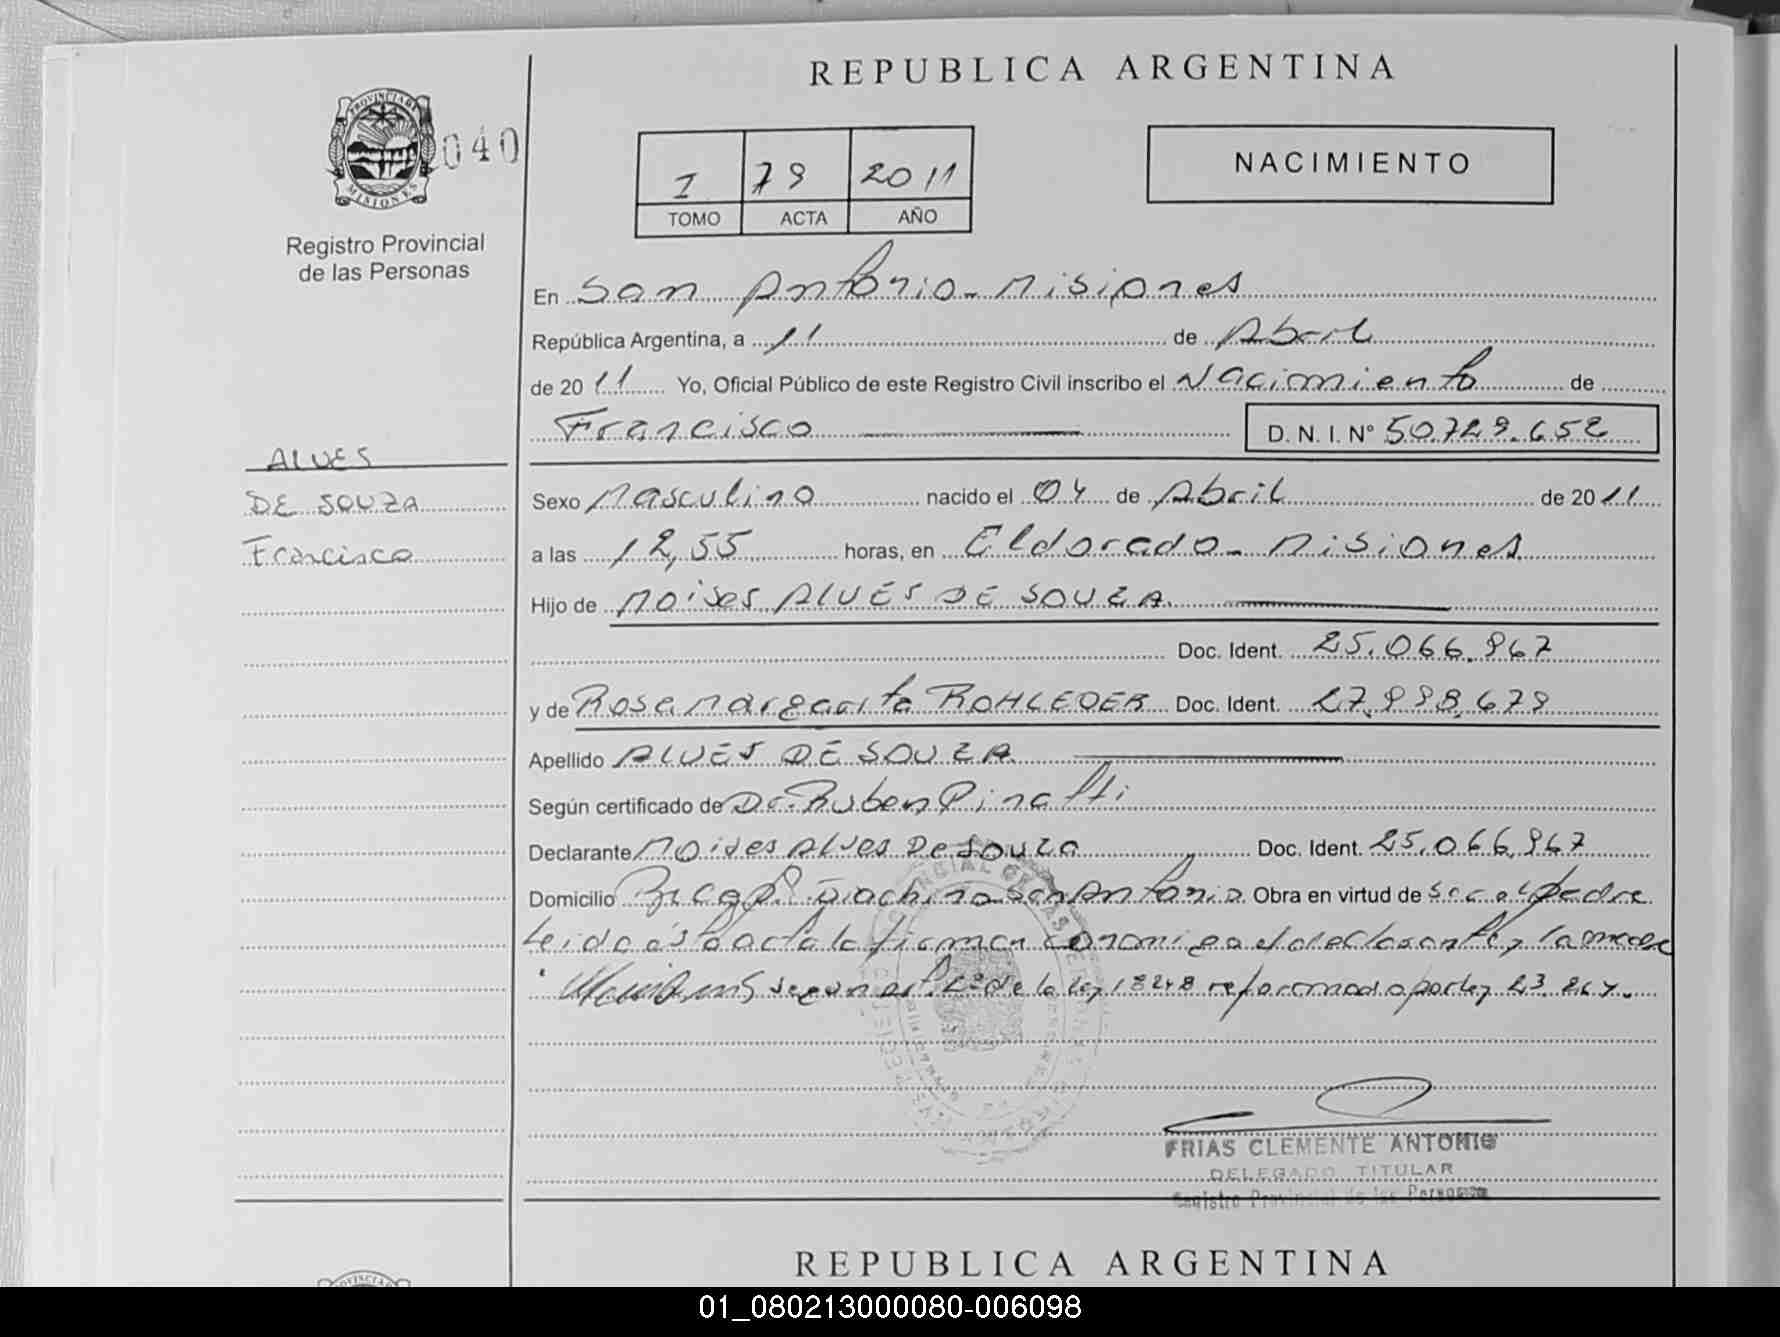 REPUBLICA ARGENTINA
PROVINCIA DE
MISIONES
040
Registro Provincial
de las Personas
I 79 2011
TOMO ACTA AÑO
NACIMIENTO
En San Antonio - Misiones
República Argentina, a 11 de Abril
de 2011 Yo, Oficial Público de este Registro Civil inscribo el Nacimiento de
Francisco D. N. I. N° 50.729.652
ALVES
DE SOUZA
Francisco
Sexo Masculino nacido el 04 de Abril de 2011
a las 12,55 horas, en Eldorado - Misiones
Hijo de Moises ALVES DE SOUZA
Doc. Ident. 25.066.967
y de Rosa Margarita ROHLEDER Doc. Ident. 27.998.679
Apellido ALVES DE SOUZA
Según certificado de Dr. Ruben Pinatti
Declarante Moises Alves De Souza Doc. Ident. 25.066.967
Domicilio San Antonio Obra en virtud de ser el padre
Leida esta acta la firman conmigo el declarante y la madre
segun art. 2° de la ley 18248 reformado por ley 23.264.
FRIAS CLEMENTE ANTONIO
DELEGADO TITULAR
Registro Provincial de las Personas
REPUBLICA ARGENTINA
01_080213000080-006098